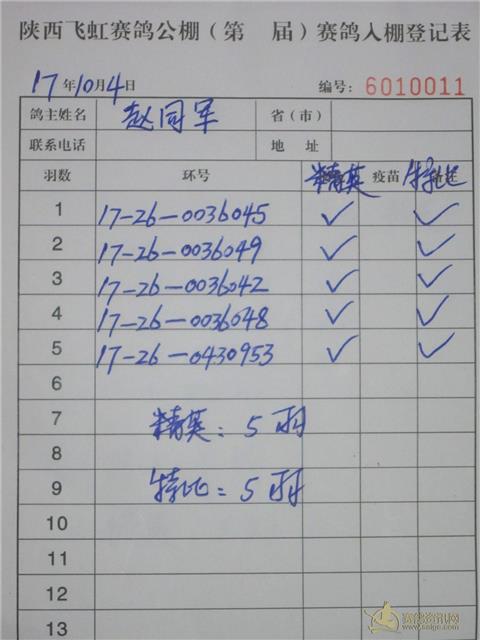 陕西飞虹赛鸽公棚（第 届）赛鸽入棚登记表
17年10月4日 编号：6010011
鸽主姓名 赵同军 省（市）
联系电话 地址
羽数 环号 精英 疫苗 特比
1 17-26-0036045 ✓ ✓
2 17-26-0036049 ✓ ✓
3 17-26-0036042 ✓ ✓
4 17-26-0036048 ✓ ✓
5 17-26-0430953 ✓ ✓
6
7 精英：5羽
8
9 特比：5羽
10
11
12
13
赛鸽资讯网
www.saige.com